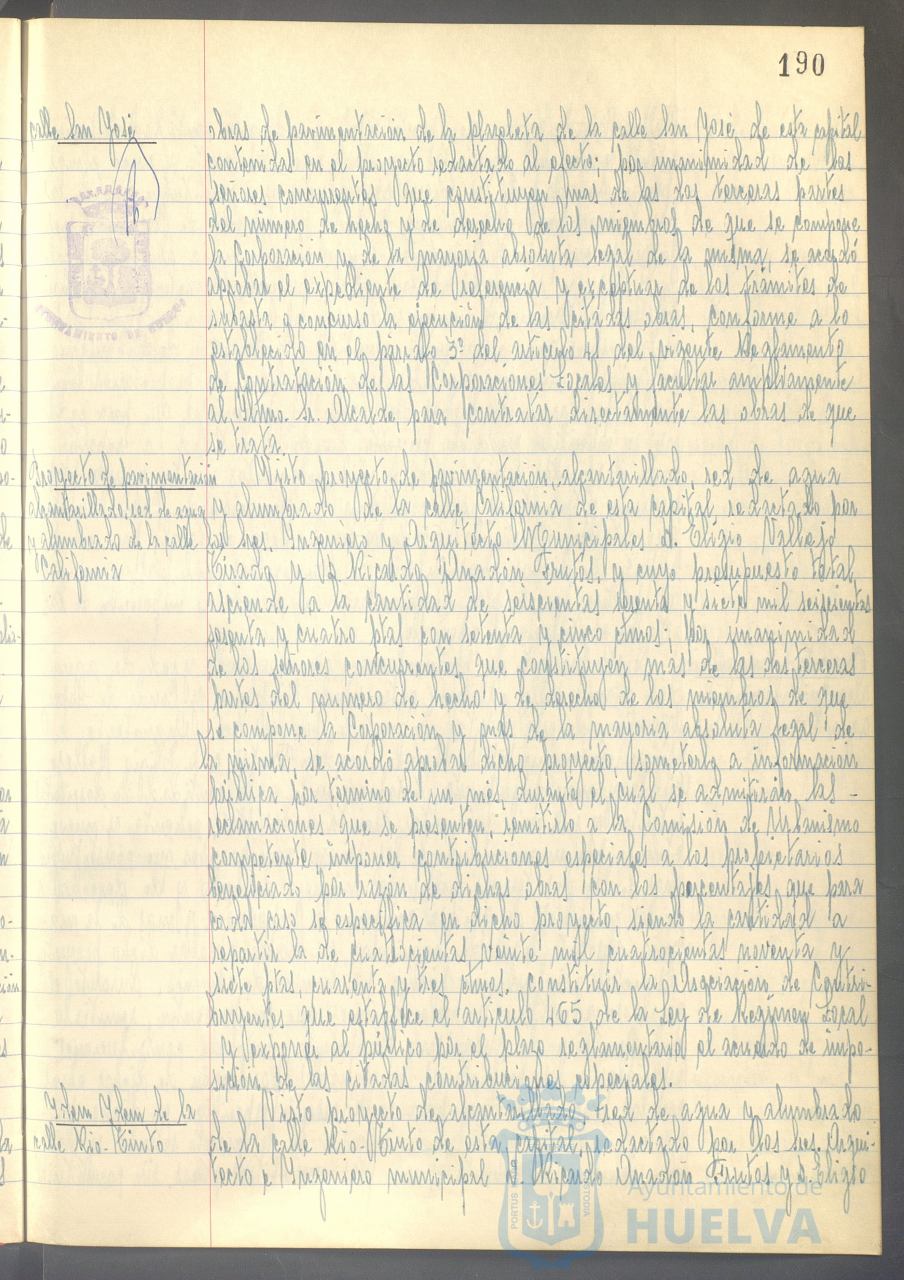 190
calle San José
obras de pavimentación de la plazoleta de la calle San José de esta capital
contenidas en el proyecto redactado al efecto; por unanimidad de los
señores concurrentes que constituyen mas de las dos terceras partes
del número de hecho y de derecho de los miembros de que se compone
la Corporación y de la mayoria absoluta legal de la misma, se acordó
aprobar el expediente de referencia y exceptuar de los trámites de
subasta o concurso la ejecución de las citadas obras, conforme a lo
establecido en el párrafo 3º del artículo 41 del vigente Reglamento
de Contratación de las Corporaciones Locales y facultar ampliamente
al Iltmo. Sr. Alcalde, para contratar directamente las obras de que
se trata.
Proyecto de pavimentación
alcantarillado, red de agua
y alumbrado de la calle
California
Visto proyecto de pavimentación, alcantarillado, red de agua
y alumbrado de la calle California de esta capital redactado por
los Sres. Ingeniero y Arquitecto Municipales D. Eligio Vallejo
Tirado y D. Ricardo Anadón Frutos, y cuyo presupuesto total
asciende a la cantidad de seiscientas sesenta y siete mil seiscientas
sesenta y cuatro ptas con setenta y cinco ctmos; por unanimidad
de los señores concurrentes que constituyen mas de las dos terceras
partes del número de hecho y de derecho de los miembros de que
se compone la Corporación y mas de la mayoria absoluta legal de
la misma se acordó aprobar dicho proyecto, someterlo a información
pública por término de un mes, durante el cual se admitirán las -
reclamaciones que se presenten; remitirlo a la Comisión de Urbanismo
competente, imponer contribuciones especiales a los propietarios
beneficiado por razón de dichas obras con los porcentajes que para
cada caso se especifica en dicho proyecto, siendo la cantidad a
repartir la de cuatrocientas veinte mil cuatrocientas noventa y
siete ptas, cuarenta y tres ctmos. constituir la Asociación de Contri-
buyentes que establece el artículo 465 de la Ley de Régimen Local
y exponer al público por el plazo reglamentario el acuerdo de impo-
sición de las citadas contribuciones especiales.
Idem Idem de la
calle Rio-Tinto
Visto proyecto de alcantarillado red de agua y alumbrado
de la calle Rio-Tinto de esta capital, redactado por los Sres. Arqui-
tecto e Ingeniero municipal D. Ricardo Anadón Frutos y D. Eligio
Ayuntamiento de
HUELVA